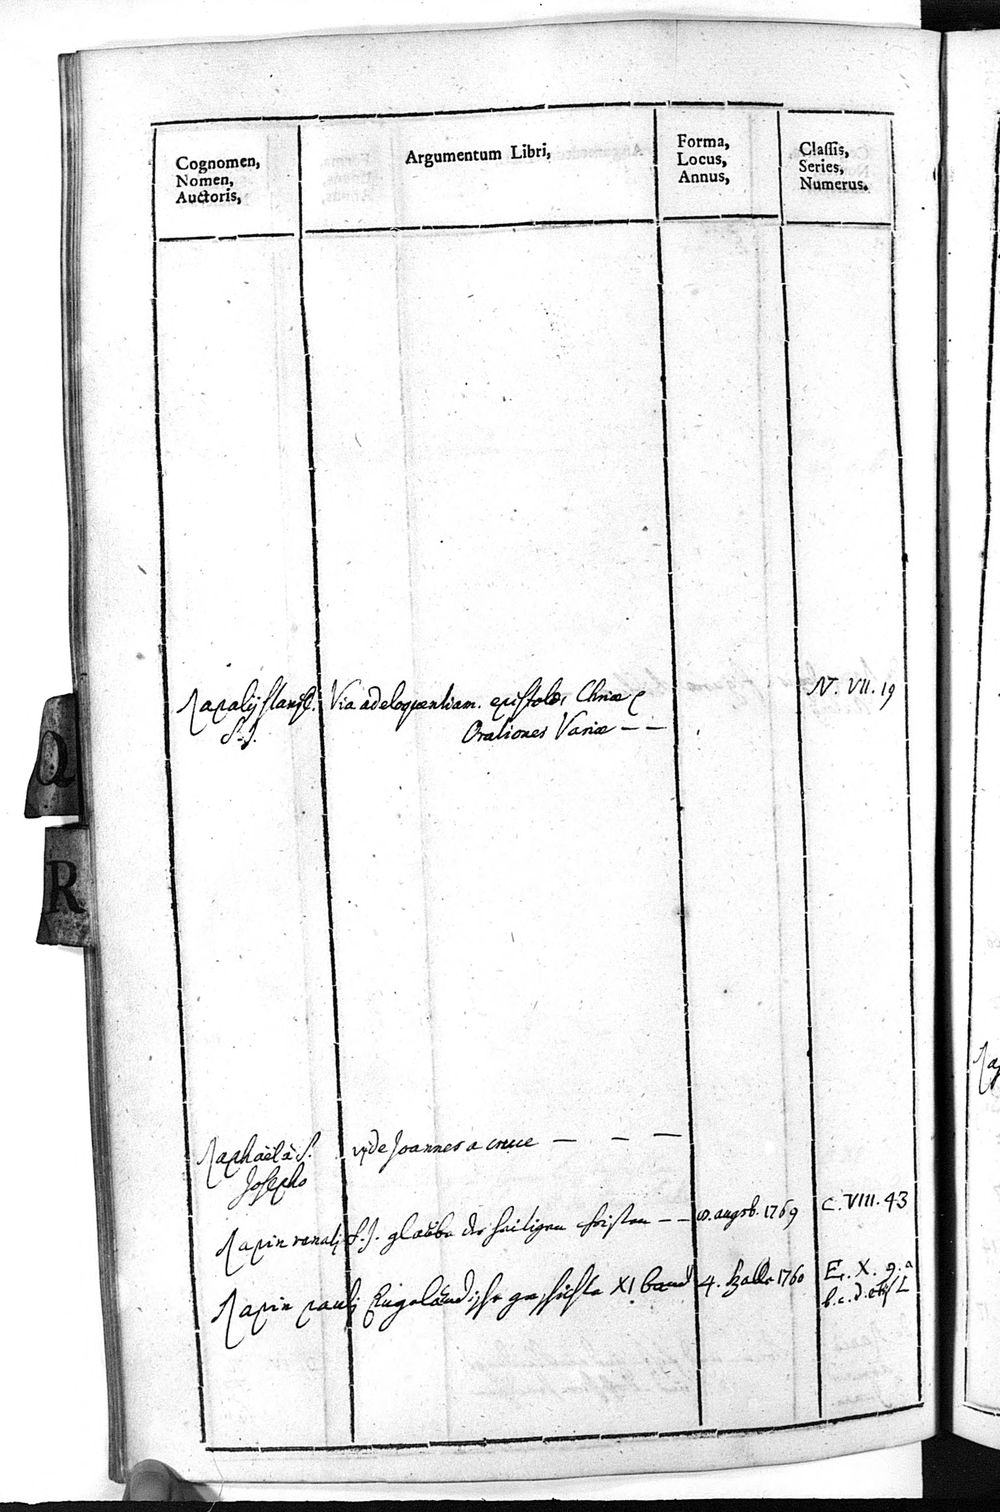 Cognomen,
Nomen,
Auctoris,
Argumentum Libri,
Forma,
Locus,
Annus,
Classis,
Series,
Numerus.
Rapalij Via ad eloquentiam. epistolæ, Chriæ N. VII. 19
S. J. Orationes Variæ — —
Q
R
Raphaël à S. vide Joannes a cruce — — —
Josepho
Rapin renati S. J. glaube der heiligen christen — — 8. augsb. 1769 C. VIII. 43
Rapin pauli Engeländische geschichte XI band 4. Halle 1760 E. X. 9. a
b. c. d.